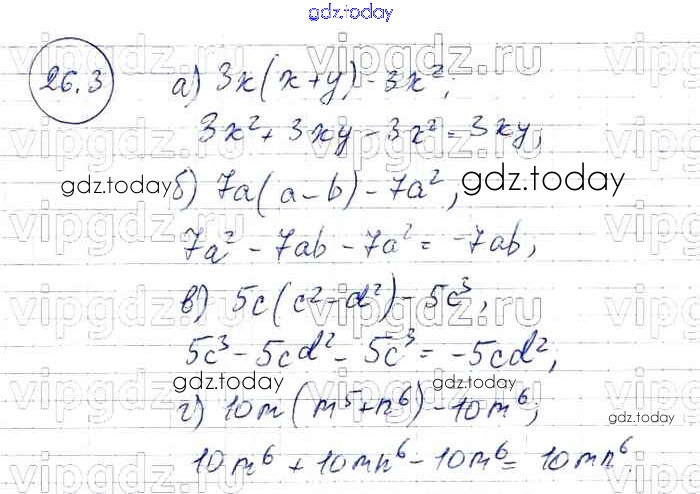 gdz.today
26.3
а) 3x(x+y)-3x²;
3x²+3xy-3x²=3xy;
gdz.today
б) 7a(a-b)-7a²;
gdz.today
7a²-7ab-7a²=-7ab;
в) 5c(c²-d²)-5c³;
5c³-5cd²-5c³=-5cd²;
gdz.today
gdz.today
г) 10m(m⁵+n⁶)-10m⁶;
gdz.today
10m⁶+10mn⁶-10m⁶=10mn⁶
vipgdz.ru
vipgdz.ru
vipgdz.ru
vipgdz.ru
vipgdz.ru